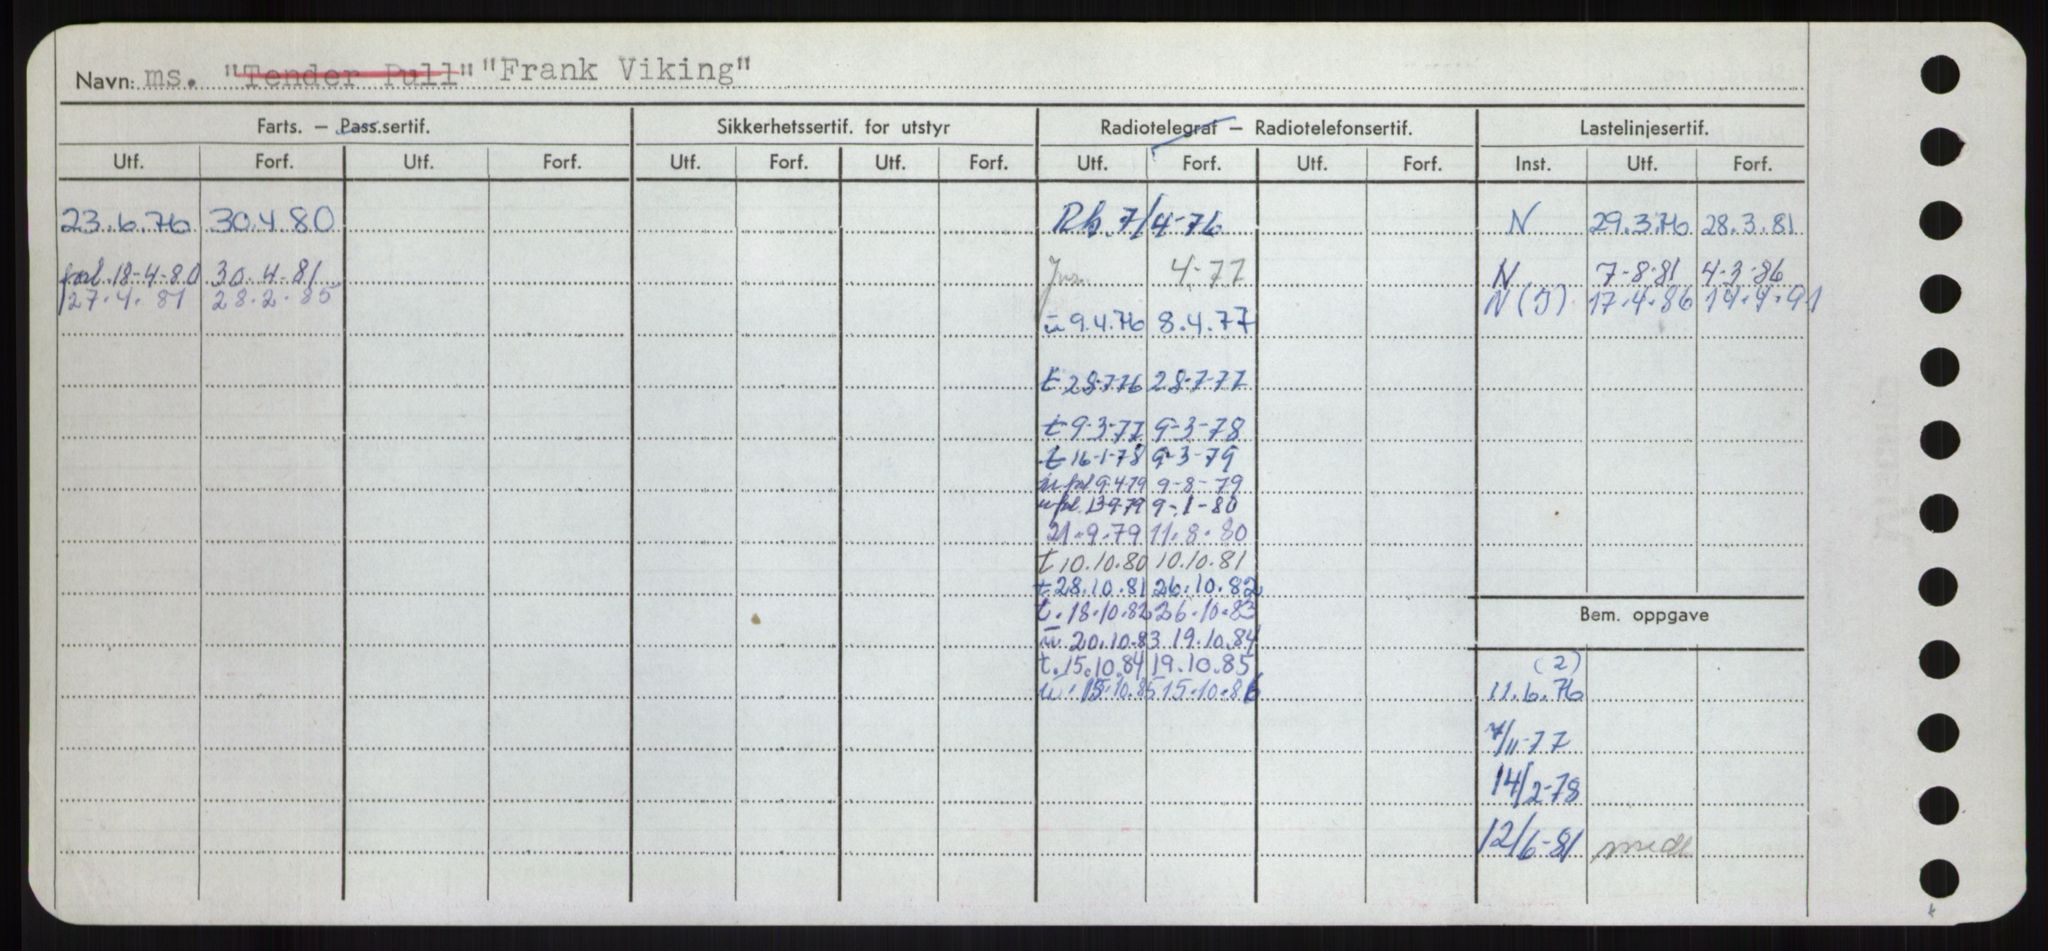 Navn: ms. "Tender Pull" "Frank Viking"
Farts. — Pass.sertif. Sikkerhetssertif. for utstyr Radiotelegraf — Radiotelefonsertif. Lastelinjesertif.
Utf. Forf. Utf. Forf. Utf. Forf. Utf. Forf. Utf. Forf. Utf. Forf. Inst. Utf. Forf.
23.6.76 30.4.80 Rh. 7/4-76 N 29.3.76 28.3.81
forl. 18-4-80 30.4.81 4-77 N 7-8-81 4-3-86
27.4.81 28.2.85 N (J) 17.4.86 14.4.91
u 9.4.76 8.4.77
t 28-7-76 28-7-77
t 9-3-77 9-3-78
t 16-1-78 9-3-79
u fol 9.4.79 9-8-79
u fol. 13-9-79 9-1-80
21.9.79 11.8.80
t 10.10.80 10.10.81
t 28.10.81 26.10.82
t. 18.10.82 26.10.83
Bem. oppgave
u 20.10.83 19.10.84
t. 15.10.84 19.10.85 (2)
u. 15.10.85 15.10.86 11.6.76
7/11-77
14/2-78
12/6-81 medl